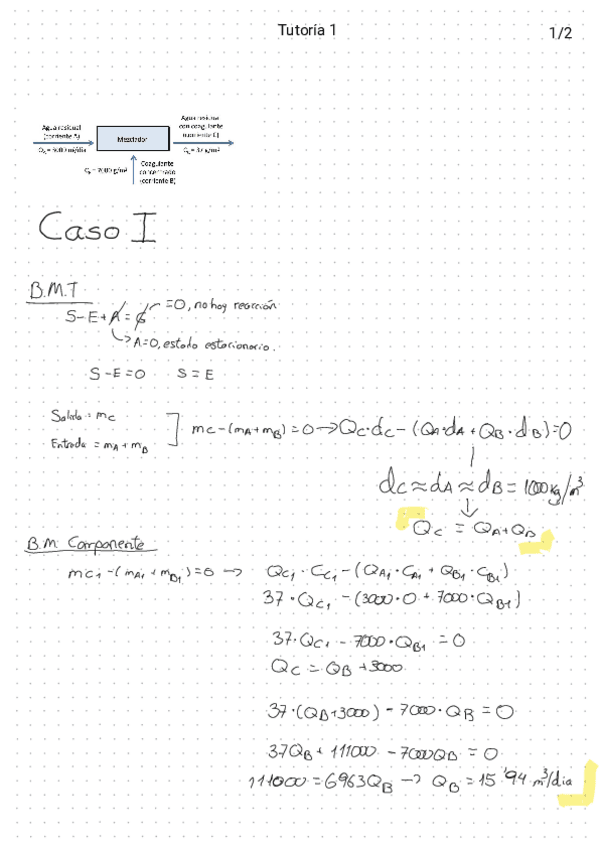 Tutoría 1
1/2
Agua residual
(corriente A)
Mezclador
Agua residual
con coagulante
(corriente C)
Coagulante
concentrado
(corriente B)
Caso I
B.M.T
S-E+A=G =0, no hay reacción
A=0, estado estacionario.
S-E=0 S=E
Salida = mc
Entrada = mA+mB
mc-(mA+mB)=0 → Qc·dc-(QA·dA+QB·dB)=0
dc≈dA≈dB=1000kg/m³
Qc = QA+QB
B.M Componente
mc1-(mA1+mB1)=0 → Qc1·Cc1-(QA1·CA1+QB1·CB1)
37·Qc1-(3000·0+7000·QB1)
37·Qc1-7000·QB1=0
Qc=QB+3000
37·(QB+3000)-7000·QB=0
37QB+111000-7000QB=0
111000=6963QB → QB=15'94 m³/dia